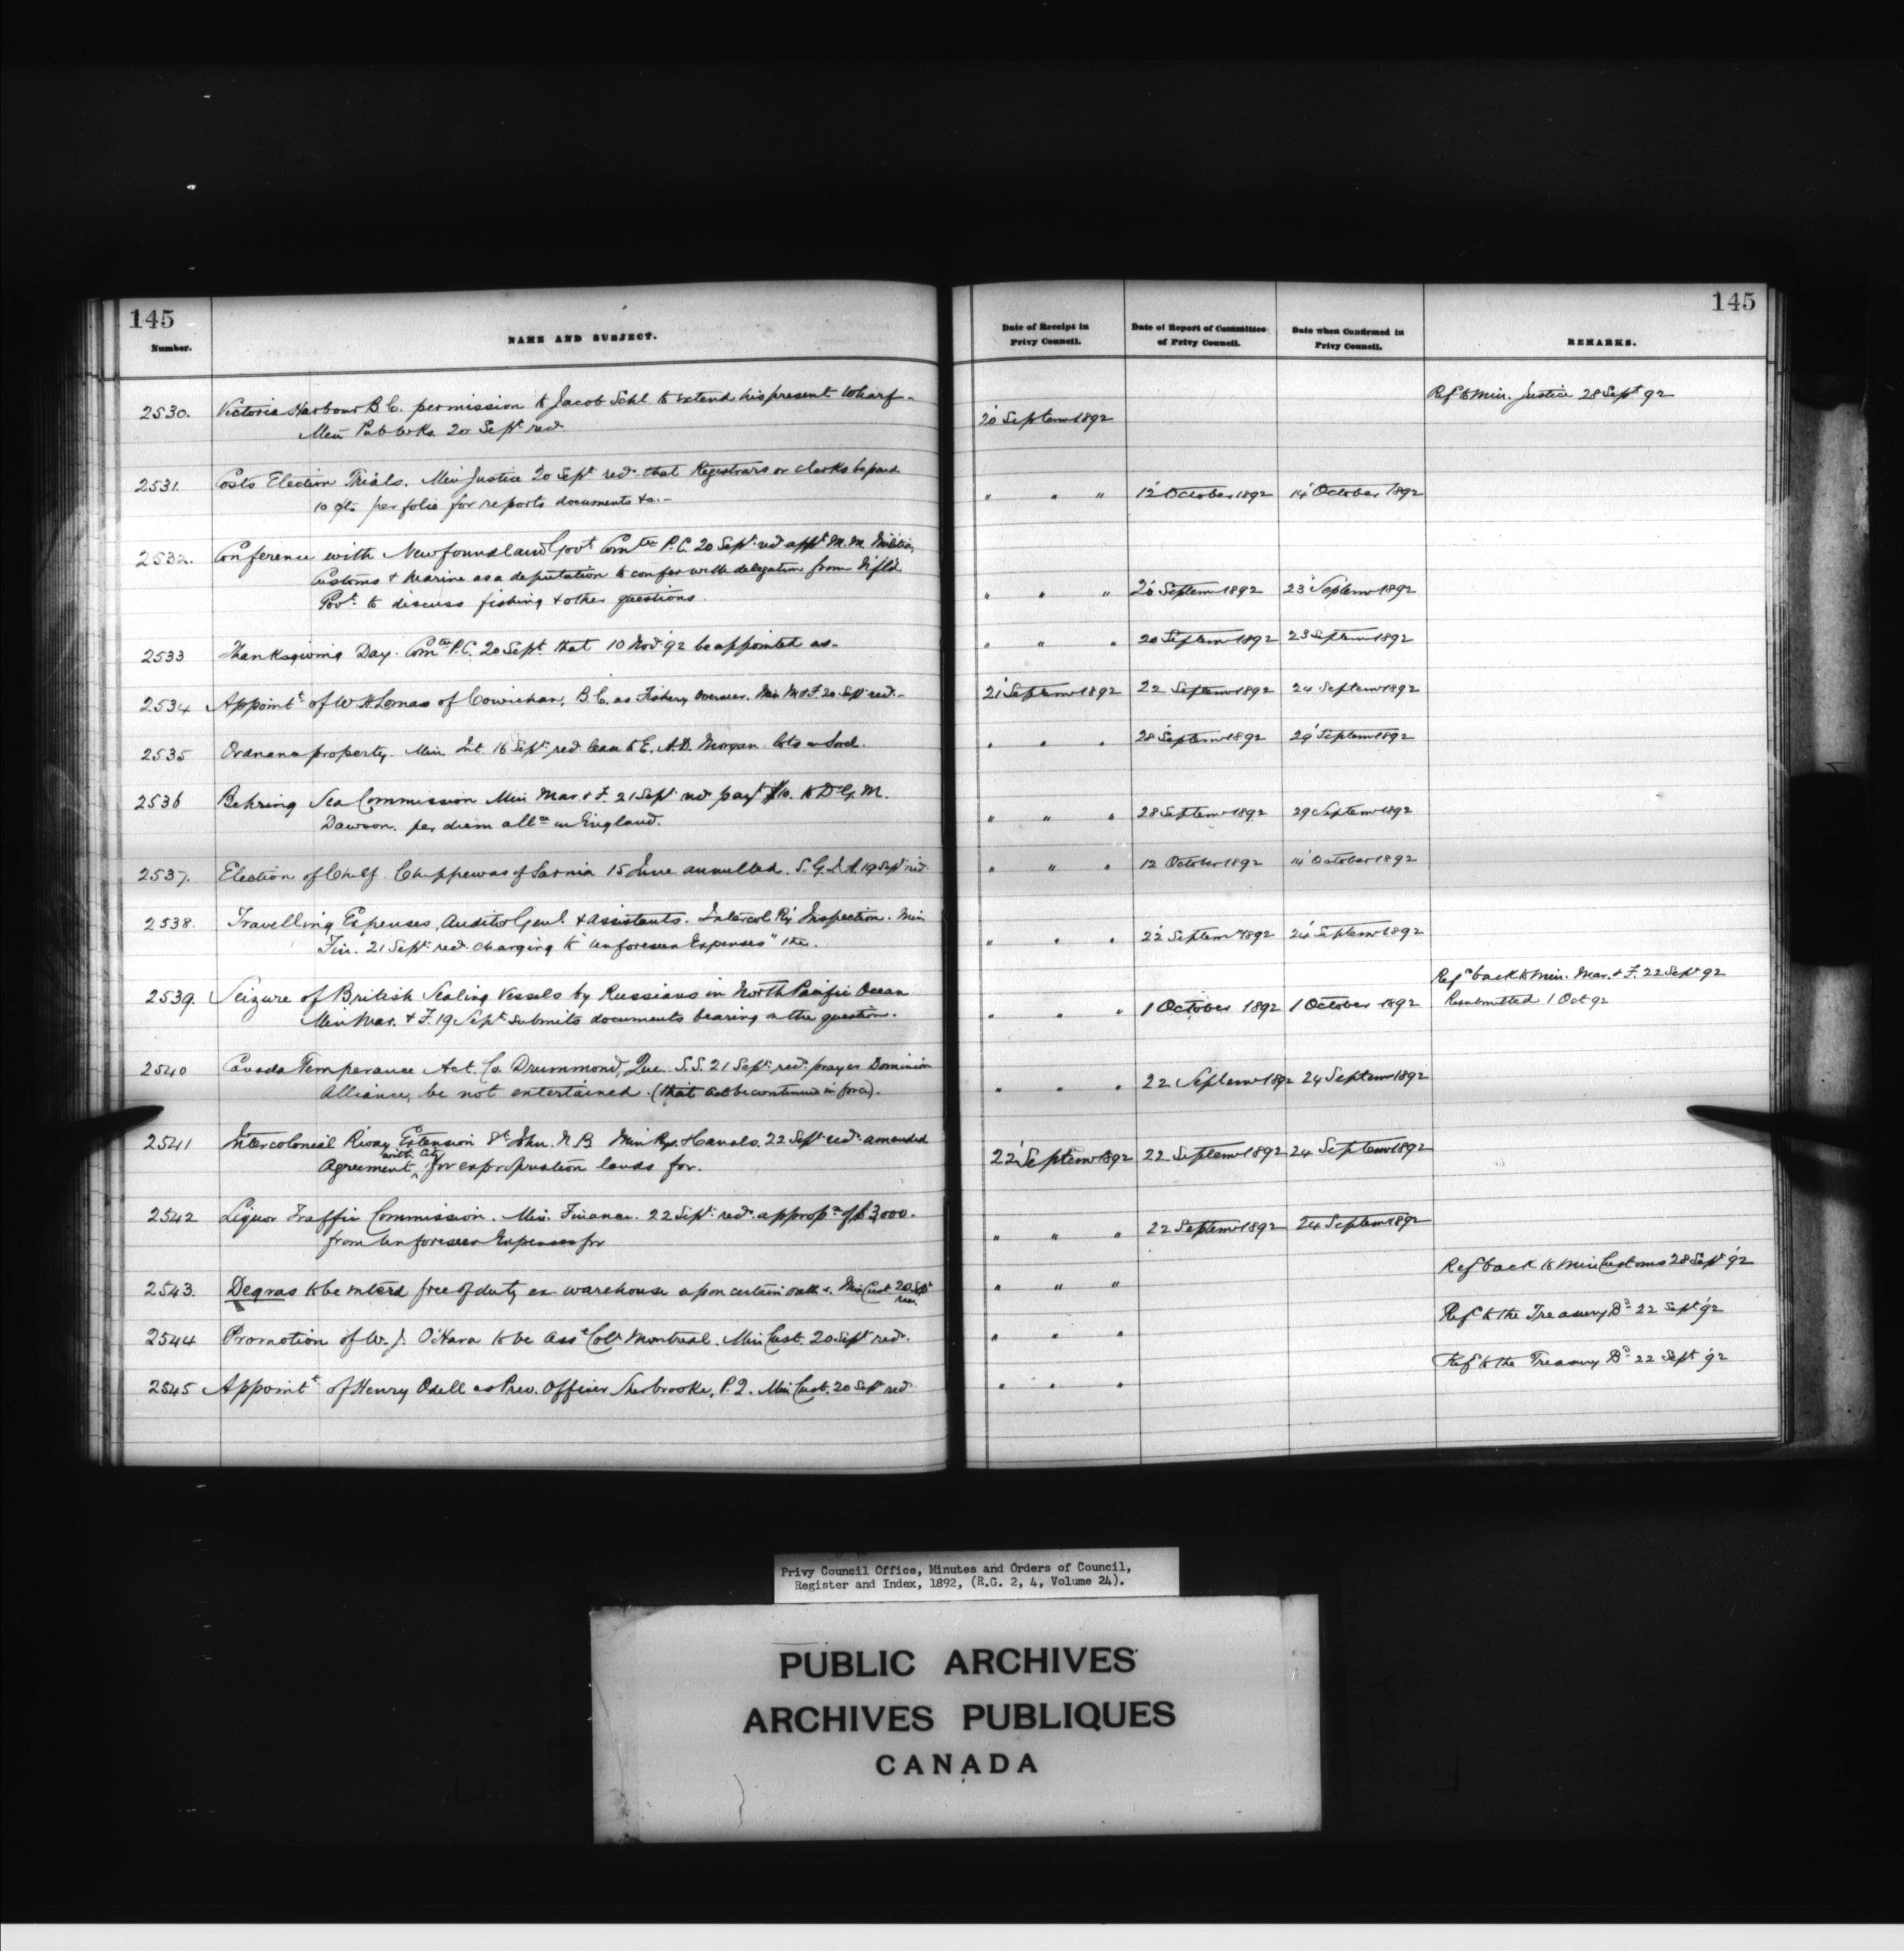 145
145
Number.
NAME AND SUBJECT.
Date of Receipt in Privy Council.
Date of Report of Committee of Privy Council.
Date when Confirmed in Privy Council.
REMARKS.
2530. Victoria Harbour B.C. permission to Jacob Sehl to extend his present wharf-
Min Pub Wks. 20 Sept recd.
20 Septem 1892
Ref to Min. Justice 28 Sept 92
2531. Costs Election Trials. Min Justice 20 Sept recd that Registrars or clerks be paid
10 cts per folio for reports documents &c.-
" " " 12 October 1892 14 October 1892
2532. Conference with Newfoundland Govt Comtee P.C. 20 Sept recd appt M.M. Militia,
Customs & Marine as a deputation to confer with delegation from Nfld
Govt to discuss fishing & other questions.
" " " 20 Septem 1892 23 Septem 1892
2533 Thanksgiving Day. Comtee P.C. 20 Sept that 10 Nov 92 be appointed as-
" " " 20 Septem 1892 23 Septem 1892
2534 Appointt of W.H. Lomas of Cowichan, B.C. as Fishery Overseer. Min M & F. 20 Sept recd.-
21 Septem 1892 22 Septem 1892 24 Septem 1892
2535 Ordnance property. Min. Int. 16 Sept recd lease to E. A.D. Morgan lots in Sorel.
" " " 28 Septem 1892 29 Septem 1892
2536 Behring Sea Commission Min Mar & F. 21 Sept recd payt $10. to Dr G.M.
Dawson. per diem allce in England.
" " " 28 Septem 1892 29 Septem 1892
2537. Election of Chief Chippewas of Sarnia 15 June annulled. S.G.I.A. 19 Sept recd
" " " 12 October 1892 14 October 1892
2538. Travelling Expenses, Auditor Genl. & Assistants. Intercol Ry Inspection. Min
Fin. 21 Sept recd charging to "Unforeseen Expenses"
" " " 22 Septem 1892 24 Septem 1892
2539. Seizure of British Sealing Vessels by Russians in North Pacific Ocean
Min Mar. & F. 19 Sept submits documents bearing on the question.
" " " 1 October 1892 1 October 1892
Refd back to Min. Mar. & F. 22 Sept 92
Resubmitted 1 Oct 92
2540 Canada Temperance Act. Co. Drummond, Que. S.S. 21 Sept recd prayer Dominion
Alliance, be not entertained. (that Act be continued in force).
" " " 22 Septem 1892 24 Septem 1892
2541 Intercolonial Rlway Extension St John N.B. Min Rys & Canals. 22 Sept recd amended
Agreement with City for expropriation lands for.
22 Septem 1892 22 Septem 1892 24 Septem 1892
2542 Liquor Traffic Commission. Min. Finance. 22 Sept recd appropn of $3,000.
from Unforeseen Expenses for
" " " 22 Septem 1892 24 Septem 1892
2543. Degras to be enterd free of duty ex warehouse upon certain oath. Min Cust 20 Sept
recd
" " "
Ref back to Min Customs 28 Sept 92
2544 Promotion of W.J. O'Hara to be Asst Collr Montreal. Min Cust. 20 Sept recd.
" " "
Ref to the Treasury Bd 22 Sept 92
2545 Appointt of Henry Odell as Prev. Officer Sherbrooke, P.Q. Min Cust. 20 Sept recd
" " "
Ref to the Treasury Bd 22 Sept 92
Privy Council Office, Minutes and Orders of Council,
Register and Index, 1892, (R.G. 2, 4, Volume 24).
PUBLIC ARCHIVES
ARCHIVES PUBLIQUES
CANADA